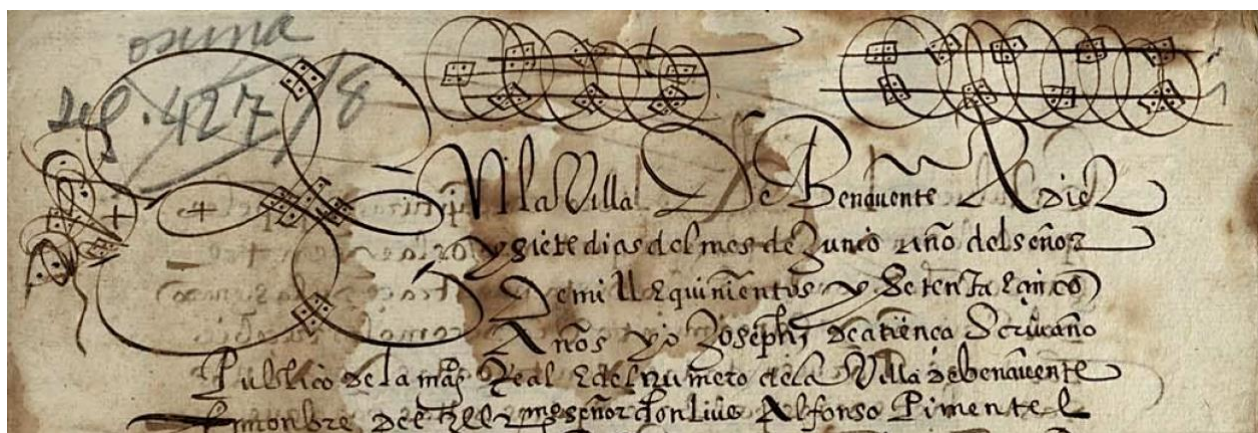 osuna
leg. 427/8
En la Villa De Benauente A diez
y siete dias del mes de Junio año del señor
De mill e quinientos y Setenta e cinco
Años yo Joseph de atiença Scriuano
Publico de la mag Real e del numero de la Villa de benauente
senor don luis Alfonso Pimentel